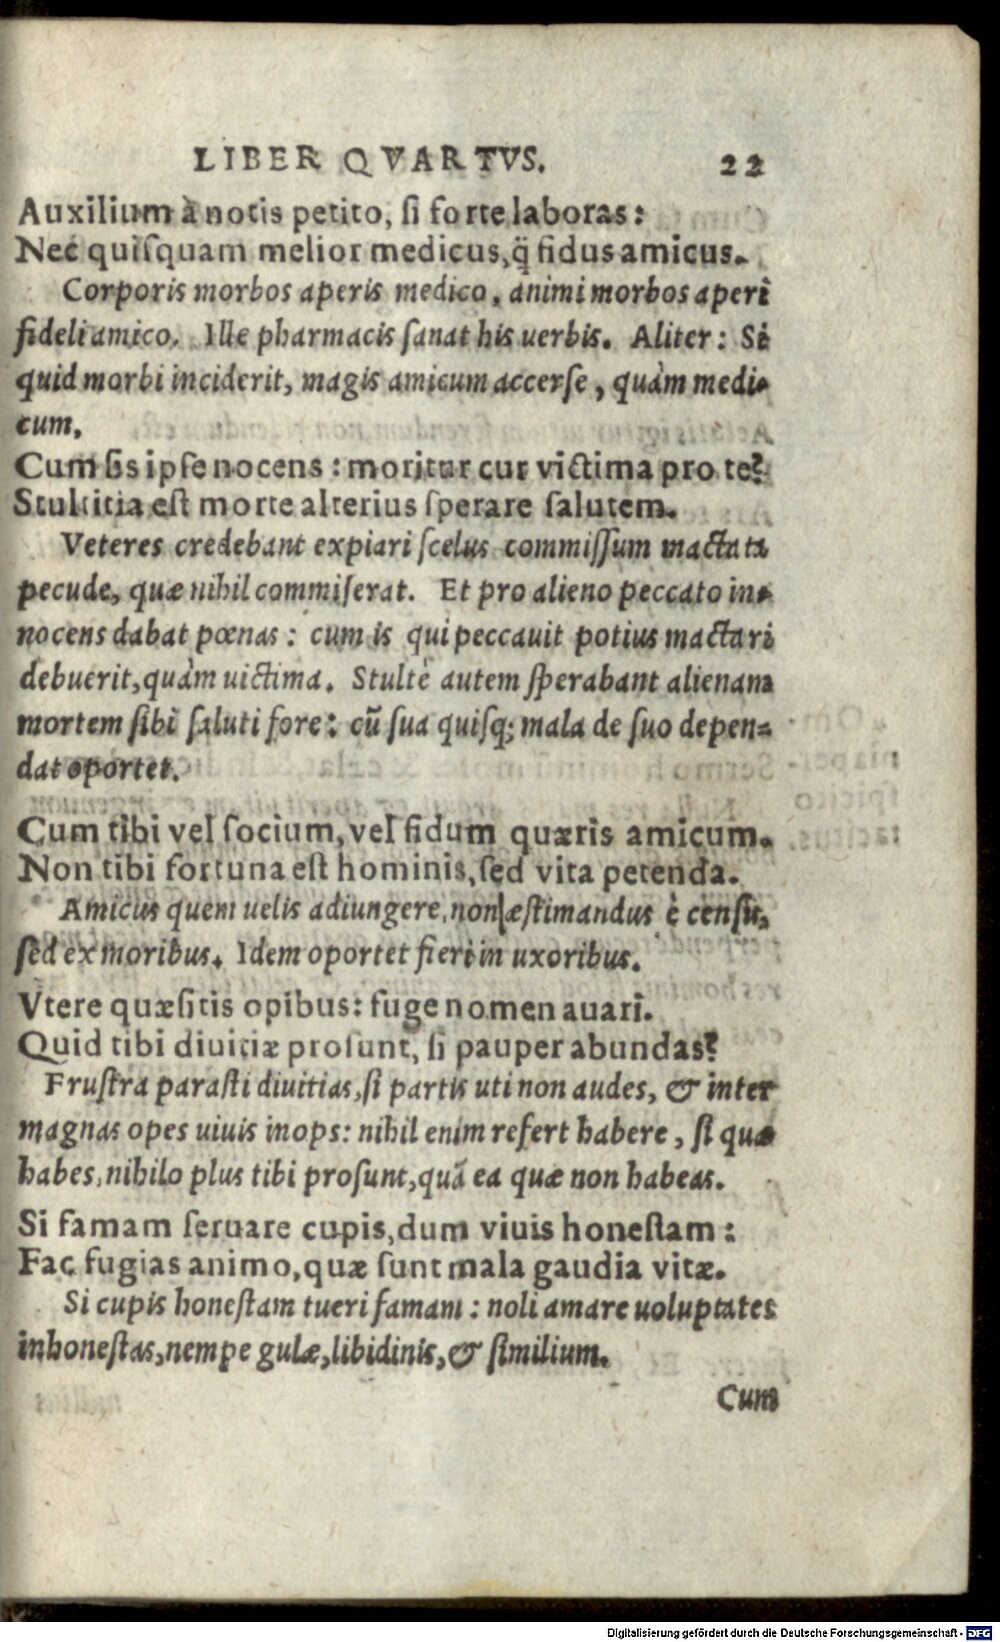 LIBER QVARTVS. 22
Auxilium à notis petito, ſi forte laboras:
Nec quiſquam melior medicus, q̃ fidus amicus.
Corporis morbos aperis medico, animi morbos aperi
fideli amico. Ille pharmacis ſanat his uerbis. Aliter: Si
quid morbi inciderit, magis amicum accerſe, quàm medi-
cum.
Cum ſis ipſe nocens: moritur cur victima pro te?
Stultitia eſt morte alterius ſperare ſalutem.
Veteres credebant expiari ſcelus commiſſum mactata
pecude, quæ nihil commiſerat. Et pro alieno peccato in-
nocens dabat pœnas: cum is qui peccauit potius mactari
debuerit, quàm uictima. Stultè autem ſperabant alienam
mortem ſibi ſaluti fore: cũ ſua quiſq; mala de ſuo depen-
dat oportet.
Cum tibi vel ſocium, vel fidum quæris amicum.
Non tibi fortuna eſt hominis, ſed vita petenda.
Amicus quem uelis adiungere, non æſtimandus è cenſu,
ſed ex moribus. Idem oportet fieri in uxoribus.
Vtere quæſitis opibus: fuge nomen auari.
Quid tibi diuitiæ proſunt, ſi pauper abundas?
Fruſtra paraſti diuitias, ſi partis uti non audes, & inter
magnas opes uiuis inops: nihil enim refert habere, ſi quæ
habes, nihilo plus tibi proſunt, quã ea quæ non habeas.
Si famam ſeruare cupis, dum viuis honeſtam:
Fac fugias animo, quæ ſunt mala gaudia vitæ.
Si cupis honeſtam tueri famam: noli amare uoluptates
inhoneſtas, nempe gulæ, libidinis, & ſimilium.
Cum
Digitalisierung gefördert durch die Deutsche Forschungsgemeinschaft - DFG